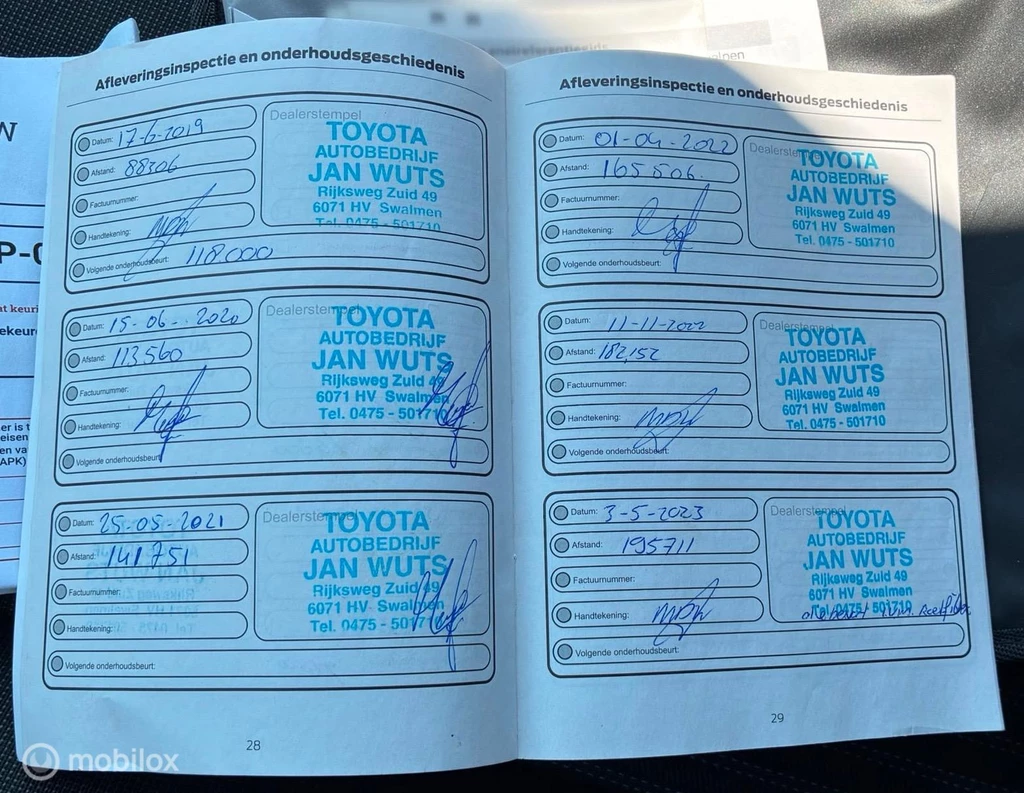 Afleveringsinspectie en onderhoudsgeschiedenis
Datum: 17-6-2019
Afstand: 88306
Factuurnummer:
Handtekening:
Volgende onderhoudsbeurt: 118.000
Dealerstempel
TOYOTA
AUTOBEDRIJF
JAN WUTS
Rijksweg Zuid 49
6071 HV Swalmen
Tel. 0475 - 501710
Datum: 15-06-2020
Afstand: 113.560
Factuurnummer:
Handtekening:
Volgende onderhoudsbeurt
Dealerstempel
TOYOTA
AUTOBEDRIJF
JAN WUTS
Rijksweg Zuid 49
6071 HV Swalmen
Tel. 0475 - 501710
Datum: 25-05-2021
Afstand: 141.751
Factuurnummer:
Handtekening:
Volgende onderhoudsbeurt:
Dealerstempel
TOYOTA
AUTOBEDRIJF
JAN WUTS
Rijksweg Zuid 49
6071 HV Swalmen
Tel. 0475 - 501710
28
Afleveringsinspectie en onderhoudsgeschiedenis
Datum: 01-04-2022
Afstand: 165506.
Factuurnummer:
Handtekening:
Volgende onderhoudsbeurt:
Dealerstempel
TOYOTA
AUTOBEDRIJF
JAN WUTS
Rijksweg Zuid 49
6071 HV Swalmen
Tel. 0475 - 501710
Datum: 11-11-2022
Afstand: 182,152
Factuurnummer:
Handtekening:
Volgende onderhoudsbeurt:
Dealerstempel
TOYOTA
AUTOBEDRIJF
JAN WUTS
Rijksweg Zuid 49
6071 HV Swalmen
Tel. 0475 - 501710
Datum: 3-5-2023
Afstand: 195711
Factuurnummer:
Handtekening:
Volgende onderhoudsbeurt:
Dealerstempel
TOYOTA
AUTOBEDRIJF
JAN WUTS
Rijksweg Zuid 49
6071 HV Swalmen
Tel. 0475 - 501710
29
mobilox